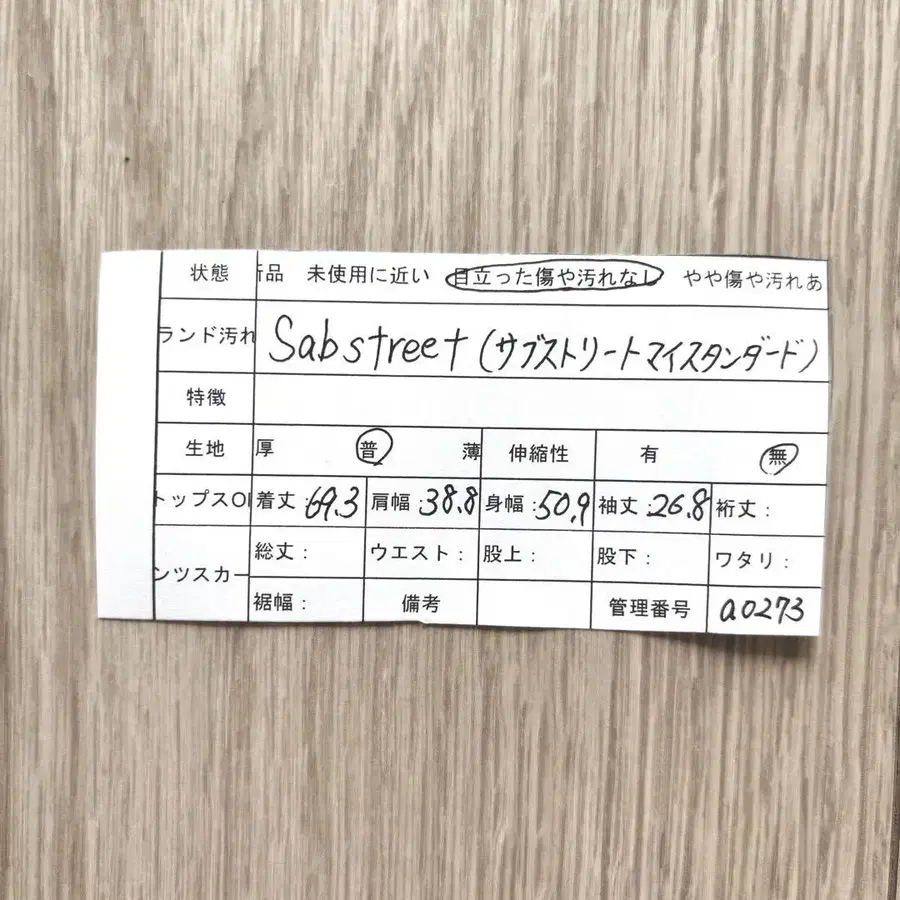 状態 新品 未使用に近い 目立った傷や汚れなし やや傷や汚れあ
ランド汚れ Sabstreet(サブストリートマイスタンダード)
特徴
生地 厚 普 薄 伸縮性 有 無
トップスOP 着丈:69.3 肩幅:38.8 身幅:50.9 袖丈:26.8 裄丈:
ンツスカー 総丈: ウエスト: 股上: 股下: ワタリ:
裾幅: 備考 管理番号 a0273